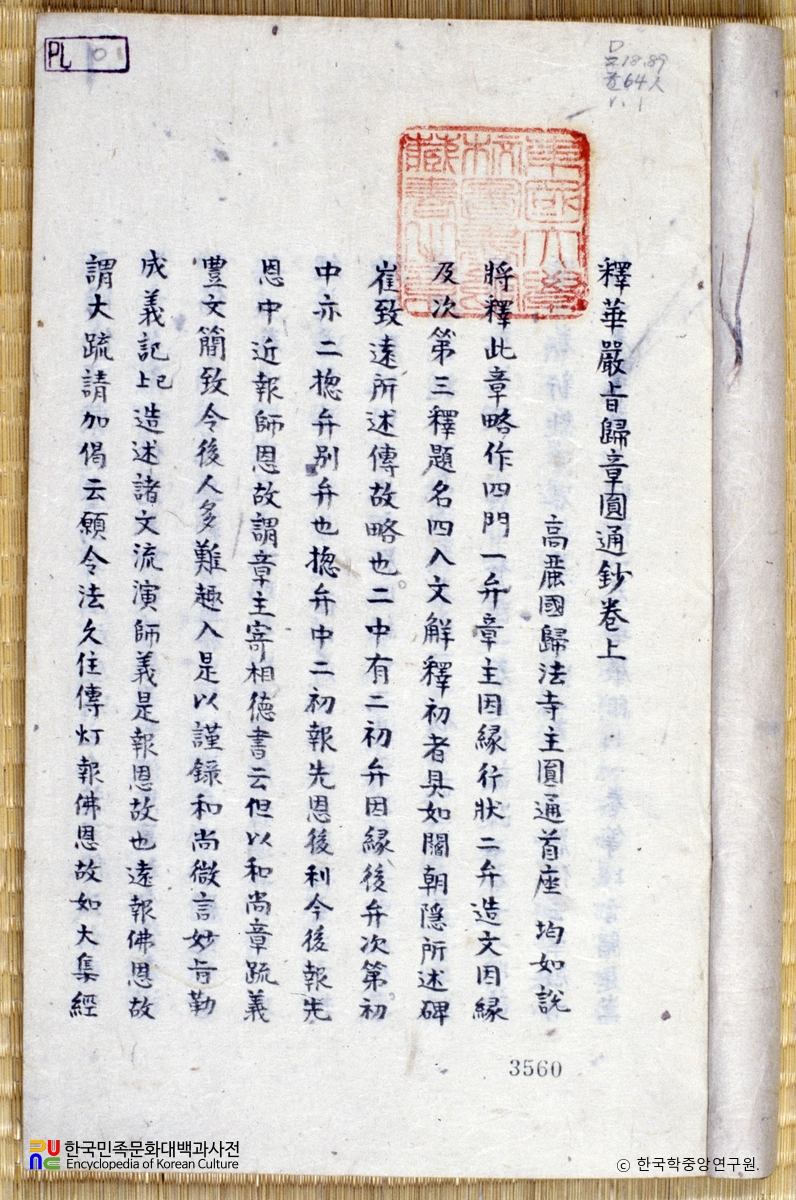 釋華嚴旨歸章圓通鈔卷上
高麗國歸法寺主圓通首座 均如說
將釋此章略作四門一弁章主因緣行狀二弁造文因緣
及次第三釋題名四入文解釋初者具如閻朝隱所述碑
崔致遠所述傳故略也。二中有二初弁因緣後弁次第。初
中亦二揔弁別弁也揔弁中二初報先恩後利今後報先
恩中近報師恩故謂章主寄相德書云但以和尚章疏義
豐文簡致令後人多難趣入是以謹錄和尚微言妙旨勒
成義記上已造述諸文流演師義是報恩故也遠報佛恩故
謂大疏請加偈云願令法久住傳灯報佛恩故如大集經
PL 0
D
18.89
64人
V. 1
3560
한국민족문화대백과사전
Encyclopedia of Korean Culture
© 한국학중앙연구원.